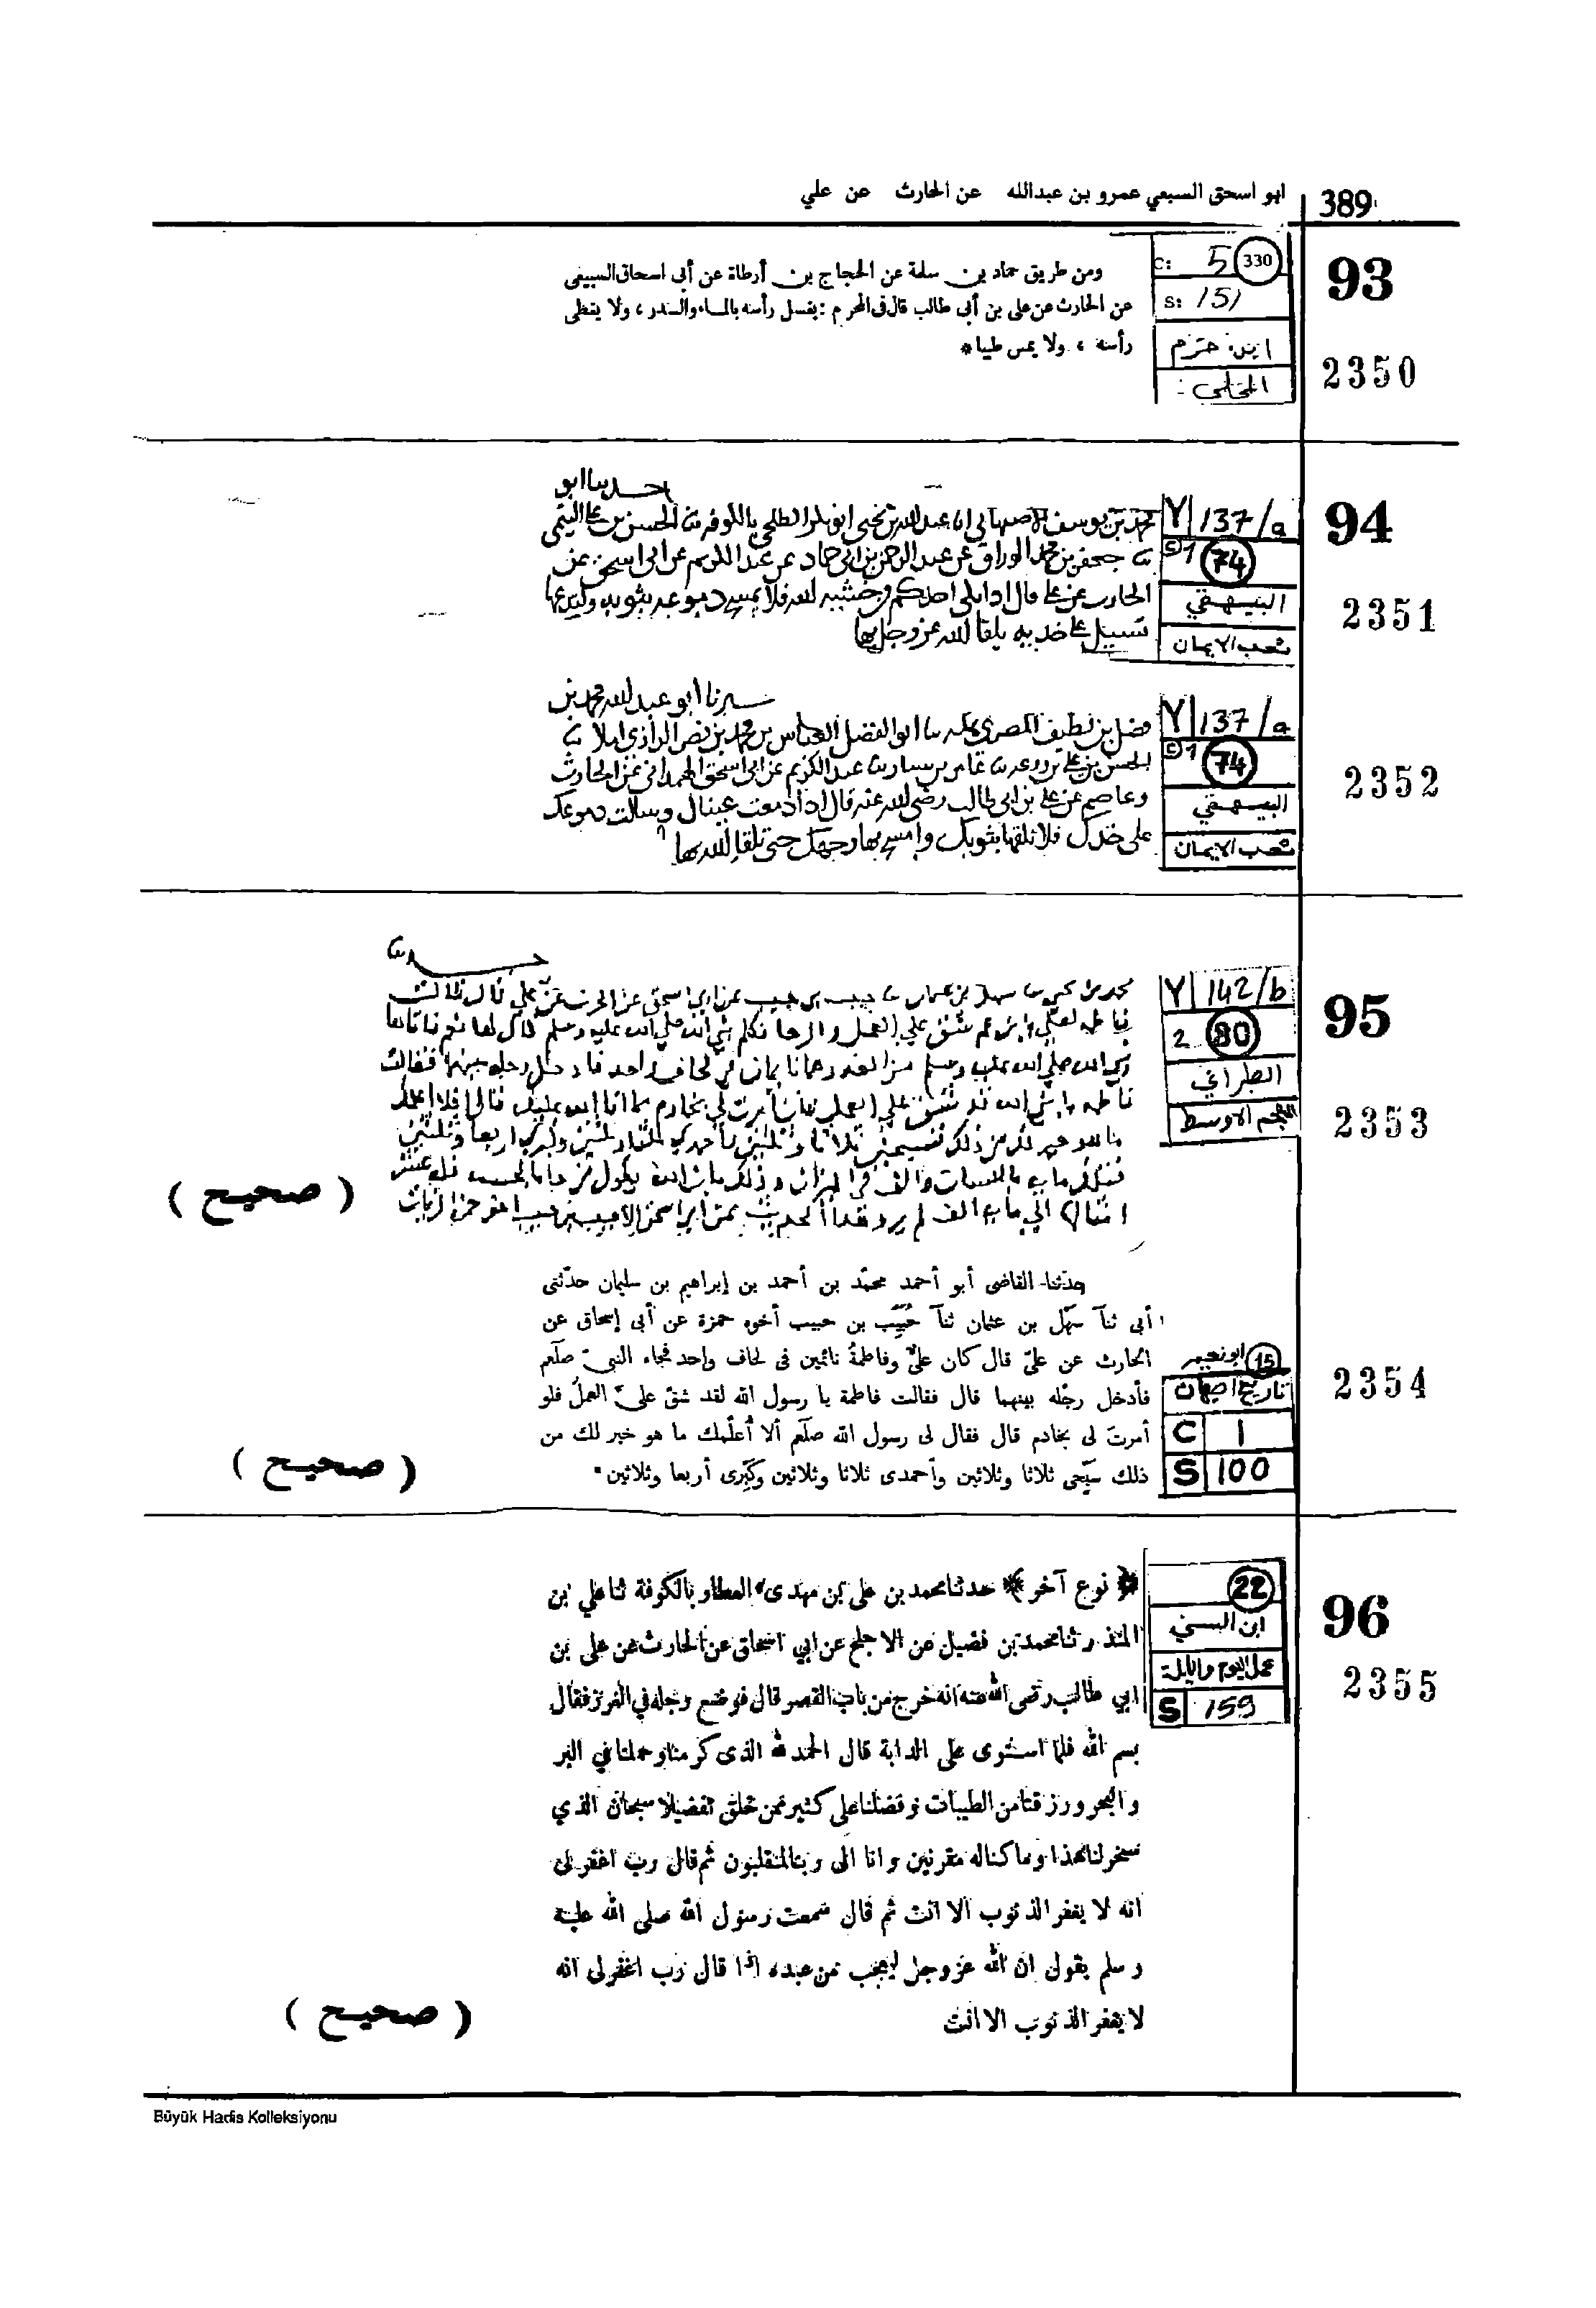 ابو اسحق السبعي عمرو بن عبدالله عن الحارث عن علي
389
93
C: 5 330
S: 151
ابن حزم
المحلى :
2350
ومن طريق حماد بن سلمة عن الحجاج بن أرطاة عن أبى اسحاق السبيعى
عن الحارث عن على بن أبى طالب قال فى المحرم : يغسل رأسه بالماء والسدر ، ولا يغطى
رأسه ، ولا يمس طيبا *
94
Y 137/a
C 1 74
البيهقي
شعب الايمان
2351
ابو
محمد بن يوسف الاصبهاني انا عبد الله بن يحيى ابو بكر الطلحي بالكوفة الحسن بن علي
جعفر بن محمد الوراق عن عبد الرحمن بن ابي حماد عن عبد الكريم عن ابي اسحق عن
الحارث عن علي قال اذا بكى احدكم من خشية الله فلا يمسح دموعه بثوبه
تسيل على خديه يلقا الله عز وجل بها
Y 137/a
C 1 74
البيهقي
شعب الايمان
2352
ابو عبد الله محمد بن
فضل بن نظيف المصري ابو الفضل العباس بن محمد بن نصر الرازي املا
الحسن بن علي عامر بن عبد الكريم عن ابي اسحق الهمداني عن الحارث
وعاصم عن علي بن ابي طالب رضي الله عنه قال اذا دمعت عيناك وسالت دموعك
على خدك فلا تلقها بثوبك وامسح بها وجهك حتى تلقا الله بها
95
Y 142/b
2 80
الطبراني
المعجم الاوسط
2353
سهل بن عثمان حبيب بن حبيب عن ابي اسحق عن الحرث عن علي قال قالت
فاطمة شق علي العمل والرحا فكلم نبي الله صلي الله عليه وسلم
نبي الله صلي الله عليه وسلم من الغد في لحاف واحد فادخل رجله بينهما فقالت
فاطمة يا نبي الله قد شق علي العمل لي بخادم مما افا الله عليك قال افلا اعلمك
ما هو خير لك من ذلك تسبحين ثلاثا وثلثين واحمدي ثلثا وثلثين وكبري اربعا وثلثين
فتلك مايه باللسان والف في الميزان وذلك بان الله يقول من جا بالحسنه فله عشر
امثالها الي مايه الف لم يرو هذا الحديث عن ابي اسحق الا حبيب بن حبيب اخو حمزة الزيات
( صحيح )
حدثنا القاضى أبو أحمد محمّد بن أحمد بن إبراهيم بن سليمان حدّثنى
أبى ثنآ سهل بن عثمان ثنآ حُبَيِّب بن حبيب أخوه حمزة عن أبى إسحاق عن
الحارث عن علىّ قال كان علىٌّ وفاطمةُ نائمين فى لحاف واحد فجاء النبىّ صلّعم
فأدخل رجْله بينهما قال فقالت فاطمة يا رسول الله لقد شقّ علىّ العملُ فلو
أمرتَ لى بخادم قال فقال لى رسول الله صلّعم ألا أُعلّمك ما هو خير لك من
ذلك سبّحى ثلاثا وثلاثين وأحمدى ثلاثا وثلاثين وكبّرى أربعا وثلاثين
15 ابو نعيم
تاريخ اصبهان
C 1
S 100
2354
( صحيح )
96
22
ابن السني
عمل اليوم والليلة
S 159
2355
﴿ نوع آخر ﴾ حدثنا محمد بن على بن مهدى العطار بالكوفة ثنا علي بن
المنذر ثنا محمد بن فضيل عن الاجلح عن ابي اسحاق عن الحارث عن على بن
ابي طالب رضى الله عنه انه خرج من باب القصر قال فوضع رجله في الغرز فقال
بسم الله فلما استوى على الدابة قال الحمد لله الذى كرمنا وحملنا في البر
والبحر ورزقنا من الطيبات وفضلنا على كثير ممن خلق تفضيلا سبحان الذي
سخر لنا هذا وما كنا له مقرنين وانا الى ربنا لمنقلبون ثم قال رب اغفر لى
انه لا يغفر الذنوب الا انت ثم قال سمعت رسول الله صلى الله عليه
وسلم يقول ان الله عز وجل ليعجب من عبده اذا قال رب اغفر لى انه
لا يغفر الذنوب الا انت
( صحيح )
Büyük Hadis Kolleksiyonu